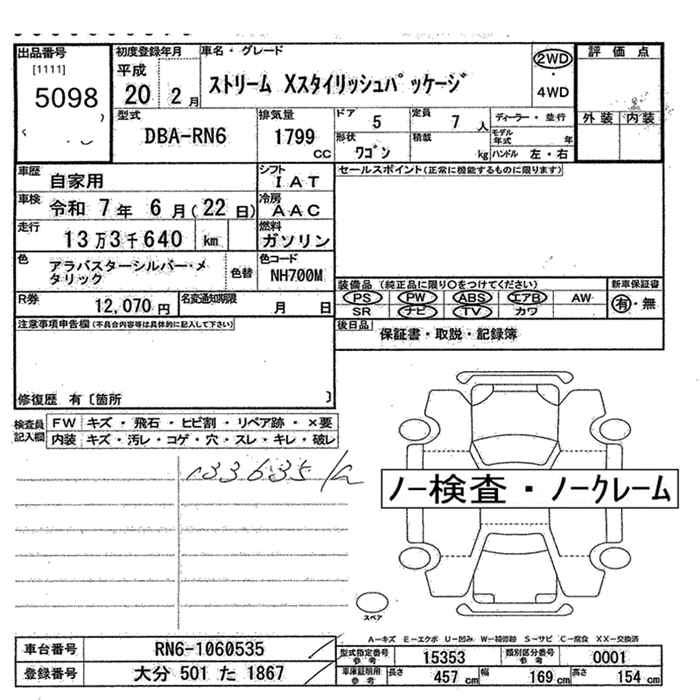 出品番号 初度登録年月 車名・グレード 評価点
[1111] 平成 2WD
5098 20 2月 ストリーム Xスタイリッシュパッケージ ・
4WD
型式 排気量 ドア 5 定員 7人 ディーラー・並行 外装 内装
DBA-RN6 1799 cc 形状 ワゴン 積載 kg モデル年式 年
ハンドル 左・右
車歴 自家用 シフト IAT セールスポイント(正常に機能するものに限ります)
車検 令和 7年 6月(22日) 冷房 AAC
走行 13万3千640 km 燃料 ガソリン
色 アラバスターシルバー・メタリック 色替 色コード NH700M
装備品(純正品に限り○をつけてください) 新車保証書
PS PW ABS エアB AW 有・無
R券 12,070円 名変通知期限 月 日 SR ナビ TV カワ
注意事項申告欄(不具合内容等は具体的に記入して下さい) 後日品 保証書・取説・記録簿
修復歴 有〔箇所 〕
検査員記入欄 FW キズ・飛石・ヒビ割・リペア跡・×要
内装 キズ・汚レ・コゲ・穴・スレ・キレ・破レ
133635
ノー検査・ノークレーム
スペア
A-キズ E-エクボ U-凹み W-補修跡 S-サビ C-腐食 XX-交換済
車台番号 RN6-1060535 型式指定番号 参考 15353 類別区分番号 参考 0001
登録番号 大分 501 た 1867 車庫証明用 参考 長さ 457 cm 幅 169 cm 高さ 154 cm